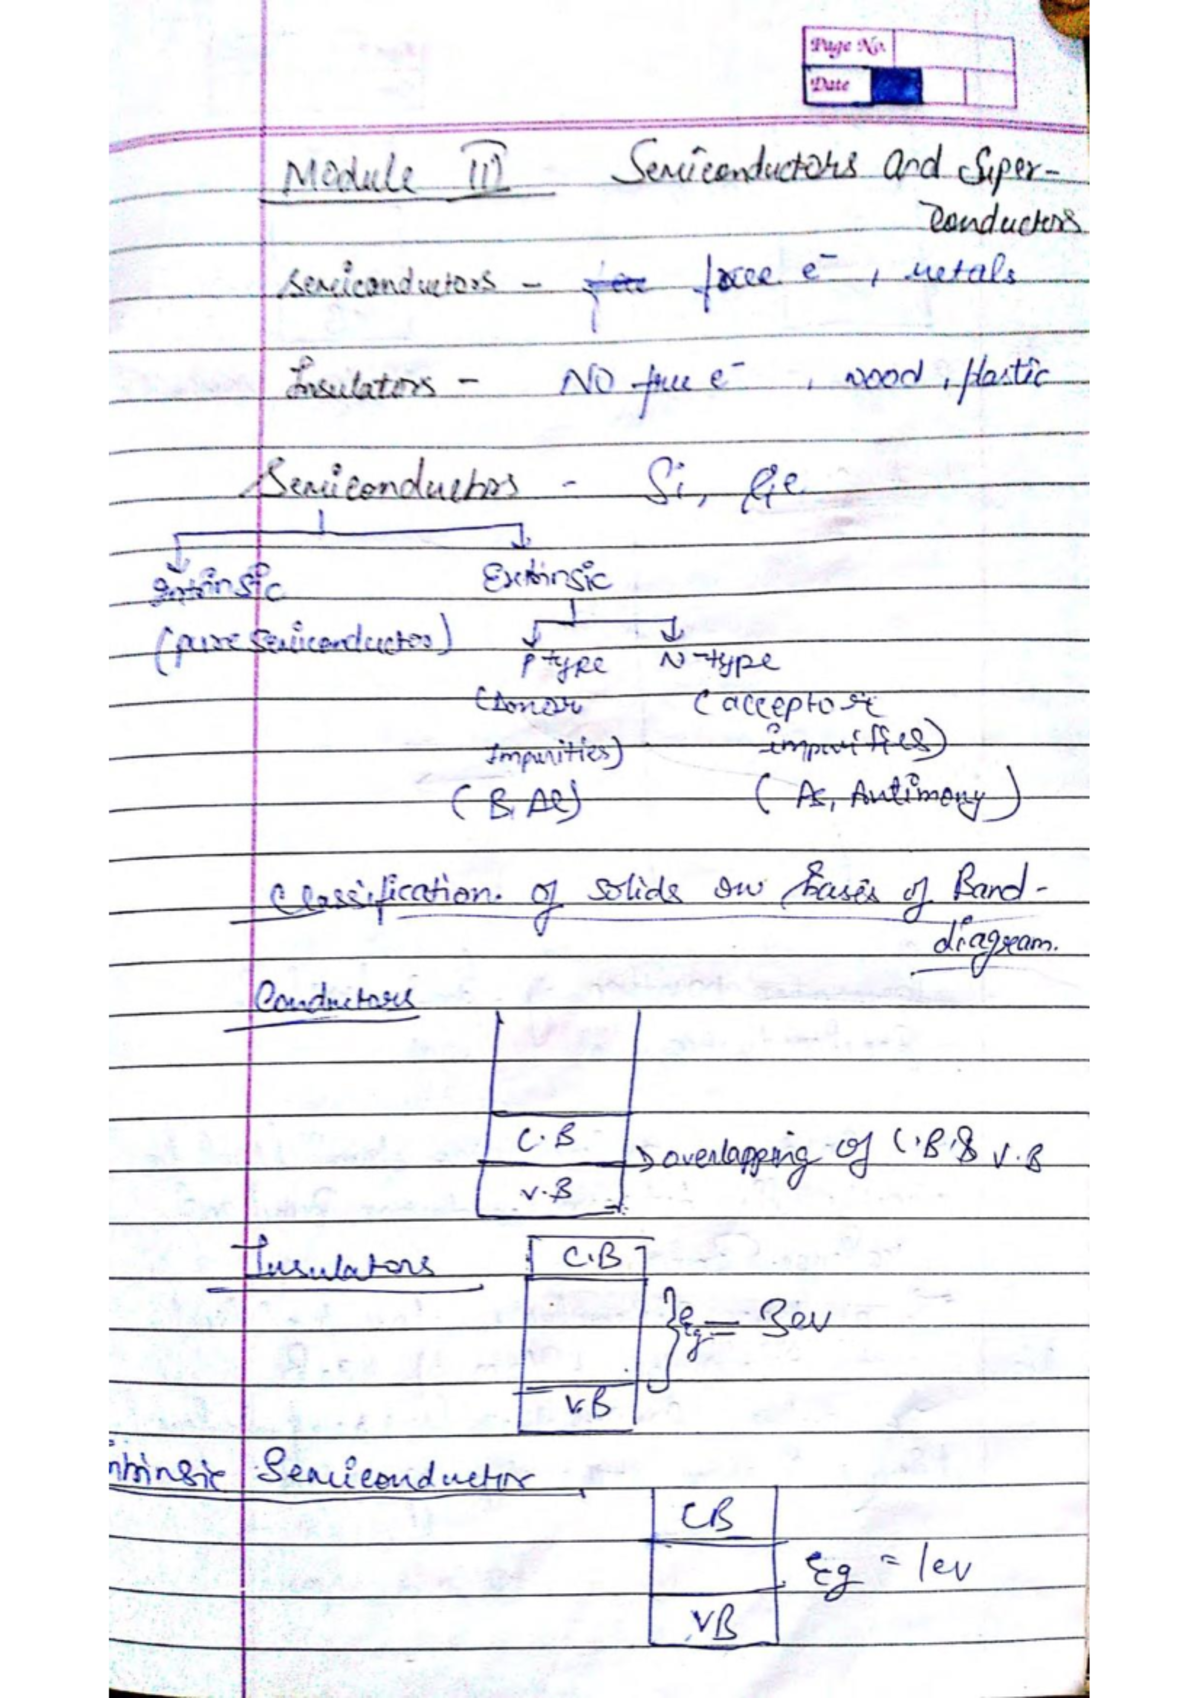 Page No.
Date
Module III Semiconductors and Super-
conductors
Semiconductors - free e⁻, metals
Insulators - NO free e⁻, wood, plastic
Semiconductors - Si, Ge
Intrinsic Extrinsic
(pure semiconductor)
P type N-type
(Donor (acceptor
impurities) impurities)
(B, Al) (As, Antimony)
Classification of solids on basis of Band-
diagram.
Conductors
C.B
overlapping of C.B & V.B
V.B
Insulators C.B
Eg = 3ev
V.B
Intrinsic Semiconductor
CB
Eg = 1ev
VB